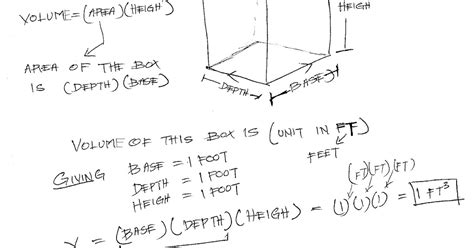 VOLUME = (AREA)(HEIGH)
HEIGH
AREA OF THE BOX
IS (DEPTH)(BASE)
DEPTH
BASE
VOLUME OF THIS BOX IS (UNIT IN FT)
FEET
GIVING BASE = 1 FOOT
DEPTH = 1 FOOT
HEIGH = 1 FOOT
(FT)(FT)(FT)
V = (BASE)(DEPTH)(HEIGH) = (1)(1)(1) = 1 FT³